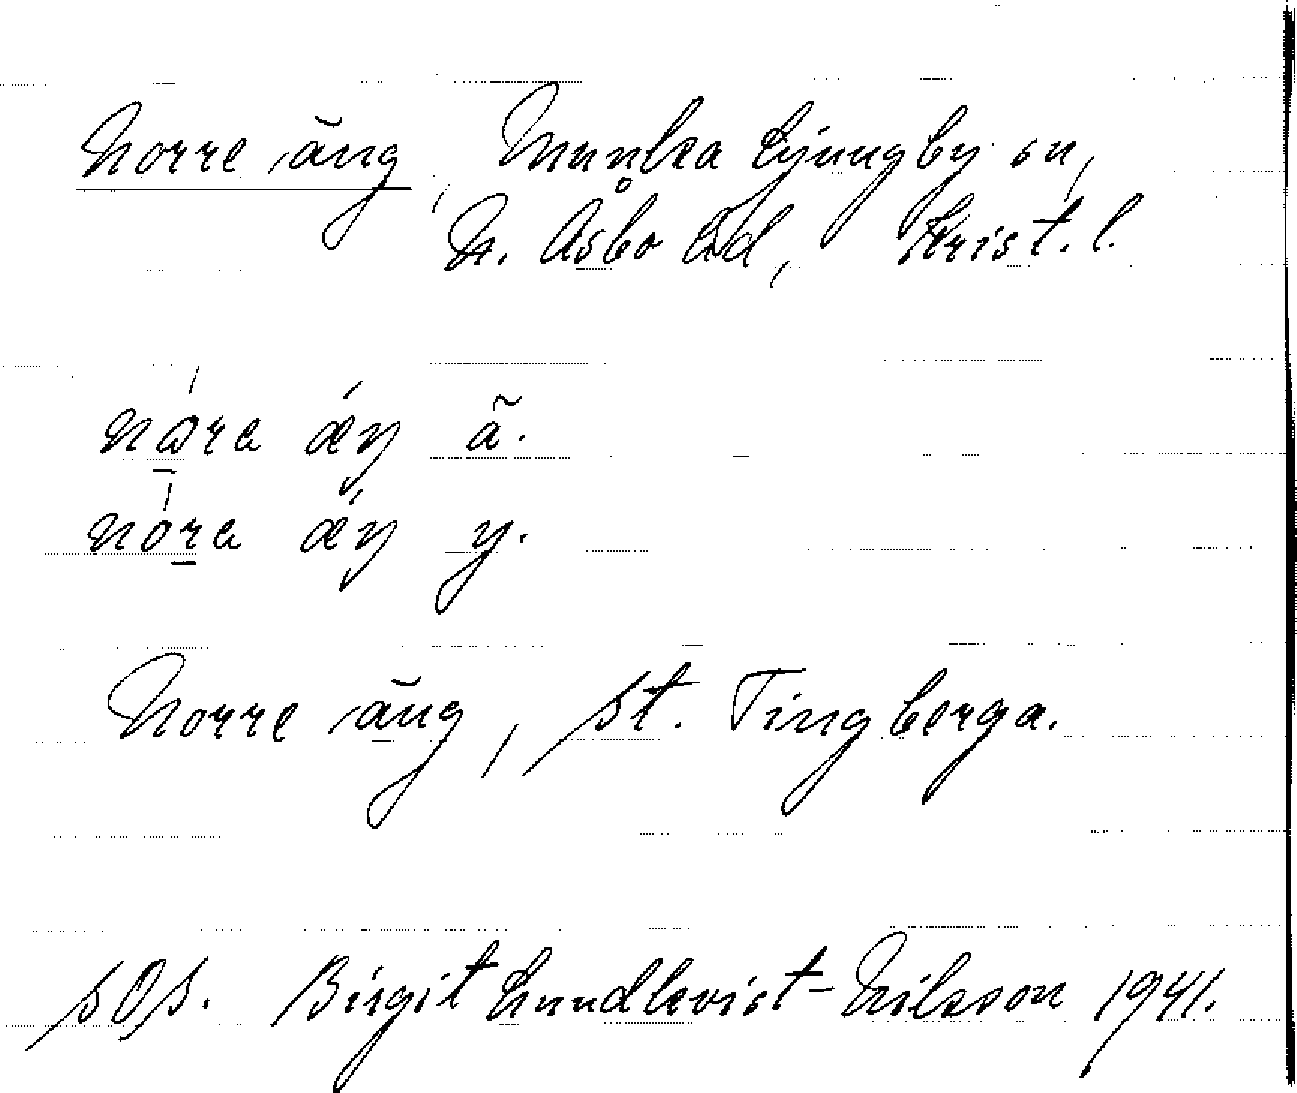 Norre äng, Munka Ljungby sn,
N. Åsbo hd, Krist. l.
nɷ́ra ǽŋ ã.
nóra ǽŋ y.
Norre äng, st. Tingberga.
sOs. Birgit Lundkvist-Nilsson 1941.